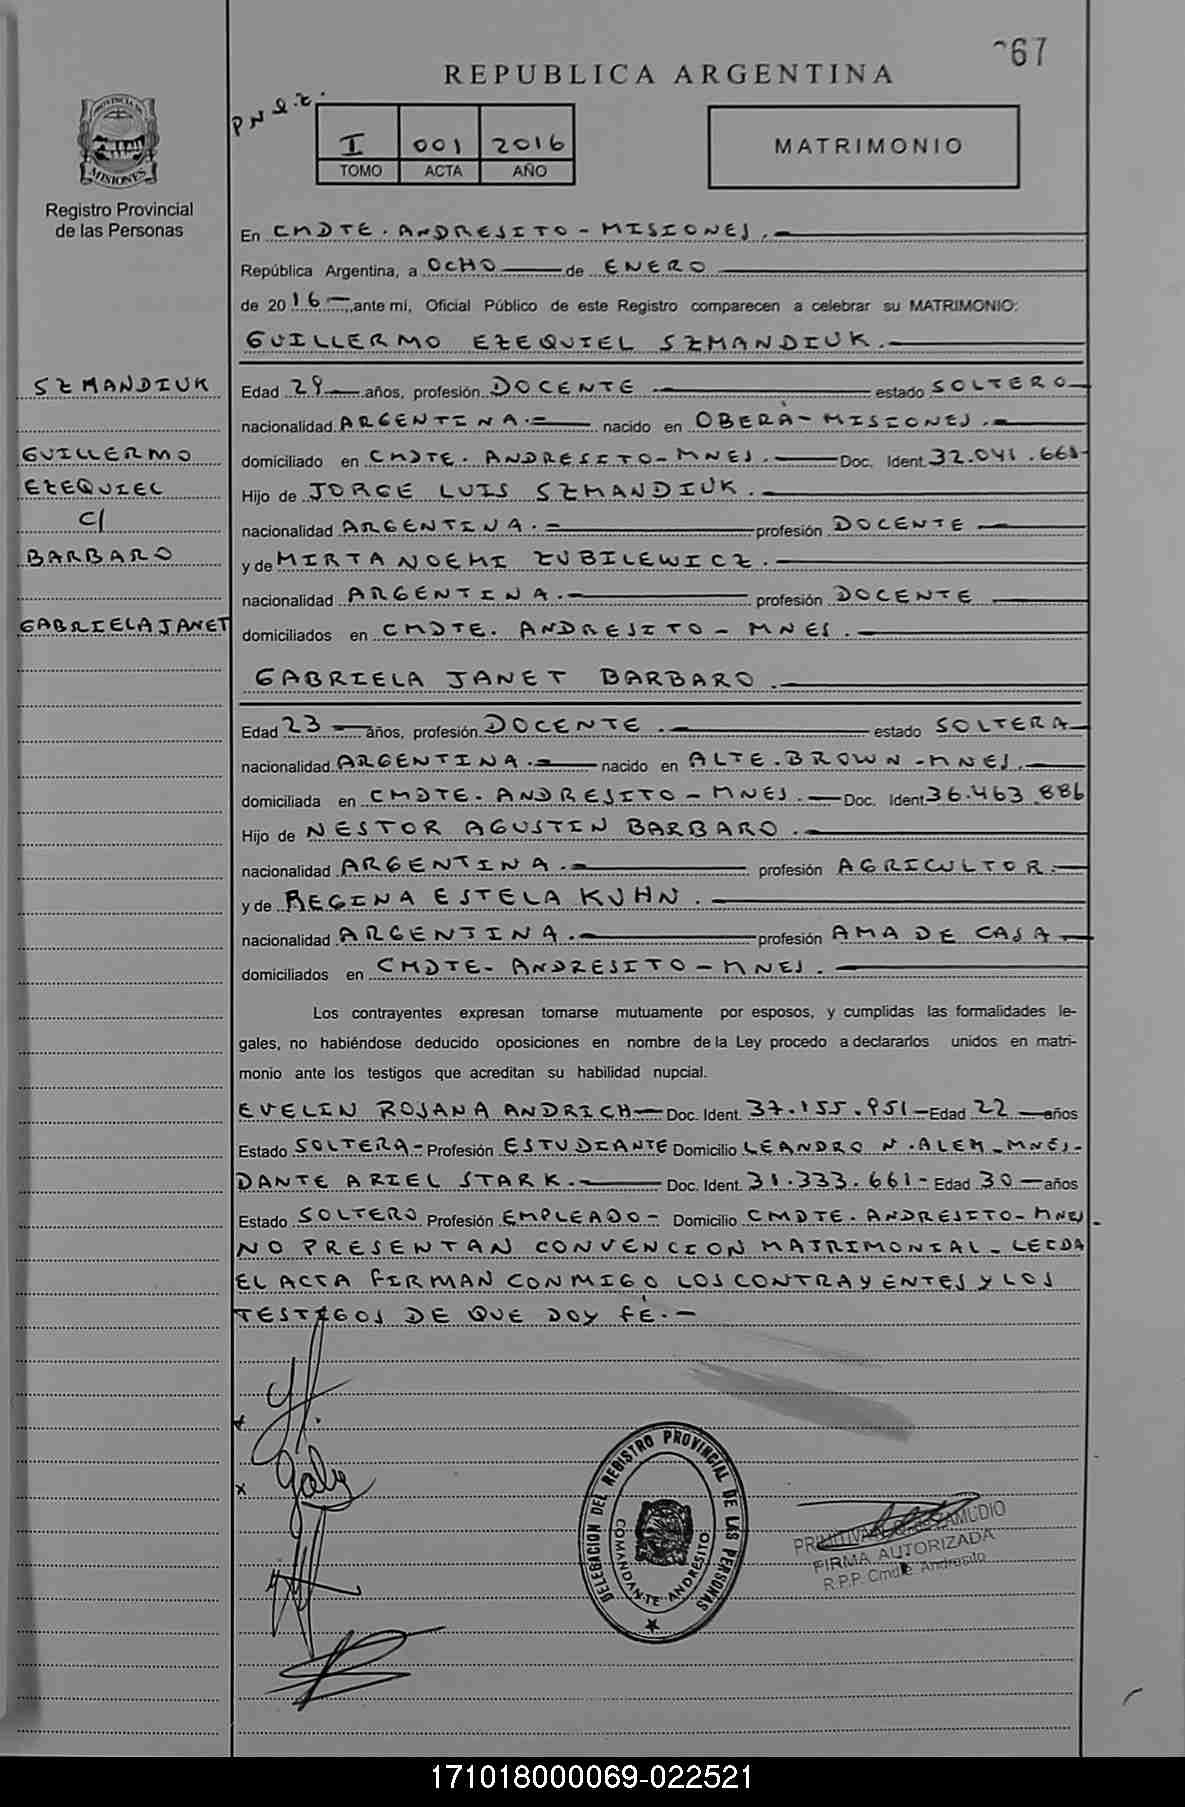 REPUBLICA ARGENTINA
67
PROVINCIA DE
MISIONES
Registro Provincial
de las Personas
I 001 2016
TOMO ACTA AÑO
MATRIMONIO
En CMDTE. ANDRESITO - MISIONES.
República Argentina, a OCHO de ENERO
de 2016 ,ante mí, Oficial Público de este Registro comparecen a celebrar su MATRIMONIO:
GUILLERMO EZEQUIEL SZMANDIUK.
SZMANDIUK
GUILLERMO
EZEQUIEL
C/
BARBARO
GABRIELA JANET
Edad 29 años, profesión DOCENTE. estado SOLTERO
nacionalidad ARGENTINA. nacido en OBERÁ - MISIONES.
domiciliado en CMDTE. ANDRESITO - MNES. Doc. Ident. 32.041.668
Hijo de JORGE LUIS SZMANDIUK.
nacionalidad ARGENTINA. profesión DOCENTE
y de MIRTA NOEMI ZUBILEWICZ.
nacionalidad ARGENTINA. profesión DOCENTE
domiciliados en CMDTE. ANDRESITO - MNES.
GABRIELA JANET BARBARO.
Edad 23 años, profesión DOCENTE. estado SOLTERA
nacionalidad ARGENTINA. nacido en ALTE. BROWN - MNES.
domiciliada en CMDTE. ANDRESITO - MNES. Doc. Ident 36.463.886
Hijo de NESTOR AGUSTIN BARBARO.
nacionalidad ARGENTINA. profesión AGRICULTOR.
y de REGINA ESTELA KUHN.
nacionalidad ARGENTINA. profesión AMA DE CASA
domiciliados en CMDTE. ANDRESITO - MNES.
Los contrayentes expresan tomarse mutuamente por esposos, y cumplidas las formalidades le-
gales, no habiéndose deducido oposiciones en nombre de la Ley procedo a declararlos unidos en matri-
monio ante los testigos que acreditan su habilidad nupcial.
EVELIN ROSANA ANDRICH Doc. Ident. 37.155.951 Edad 22 años
Estado SOLTERA - Profesión ESTUDIANTE Domicilio LEANDRO N. ALEM - MNES.
DANTE ARIEL STARK. Doc. Ident. 31.333.661 - Edad 30 años
Estado SOLTERO Profesión EMPLEADO - Domicilio CMDTE. ANDRESITO - MNES.
NO PRESENTAN CONVENCION MATRIMONIAL - LEIDA
EL ACTA FIRMAN CONMIGO LOS CONTRAYENTES Y LOS
TESTIGOS DE QUE DOY FÉ. -
Gaby
DELEGACION DEL REGISTRO PROVINCIAL DE LAS PERSONAS
COMANDANTE ANDRESITO
ZAMUDIO
FIRMA AUTORIZADA
R.P.P. Cmdte. Andresito
171018000069-022521